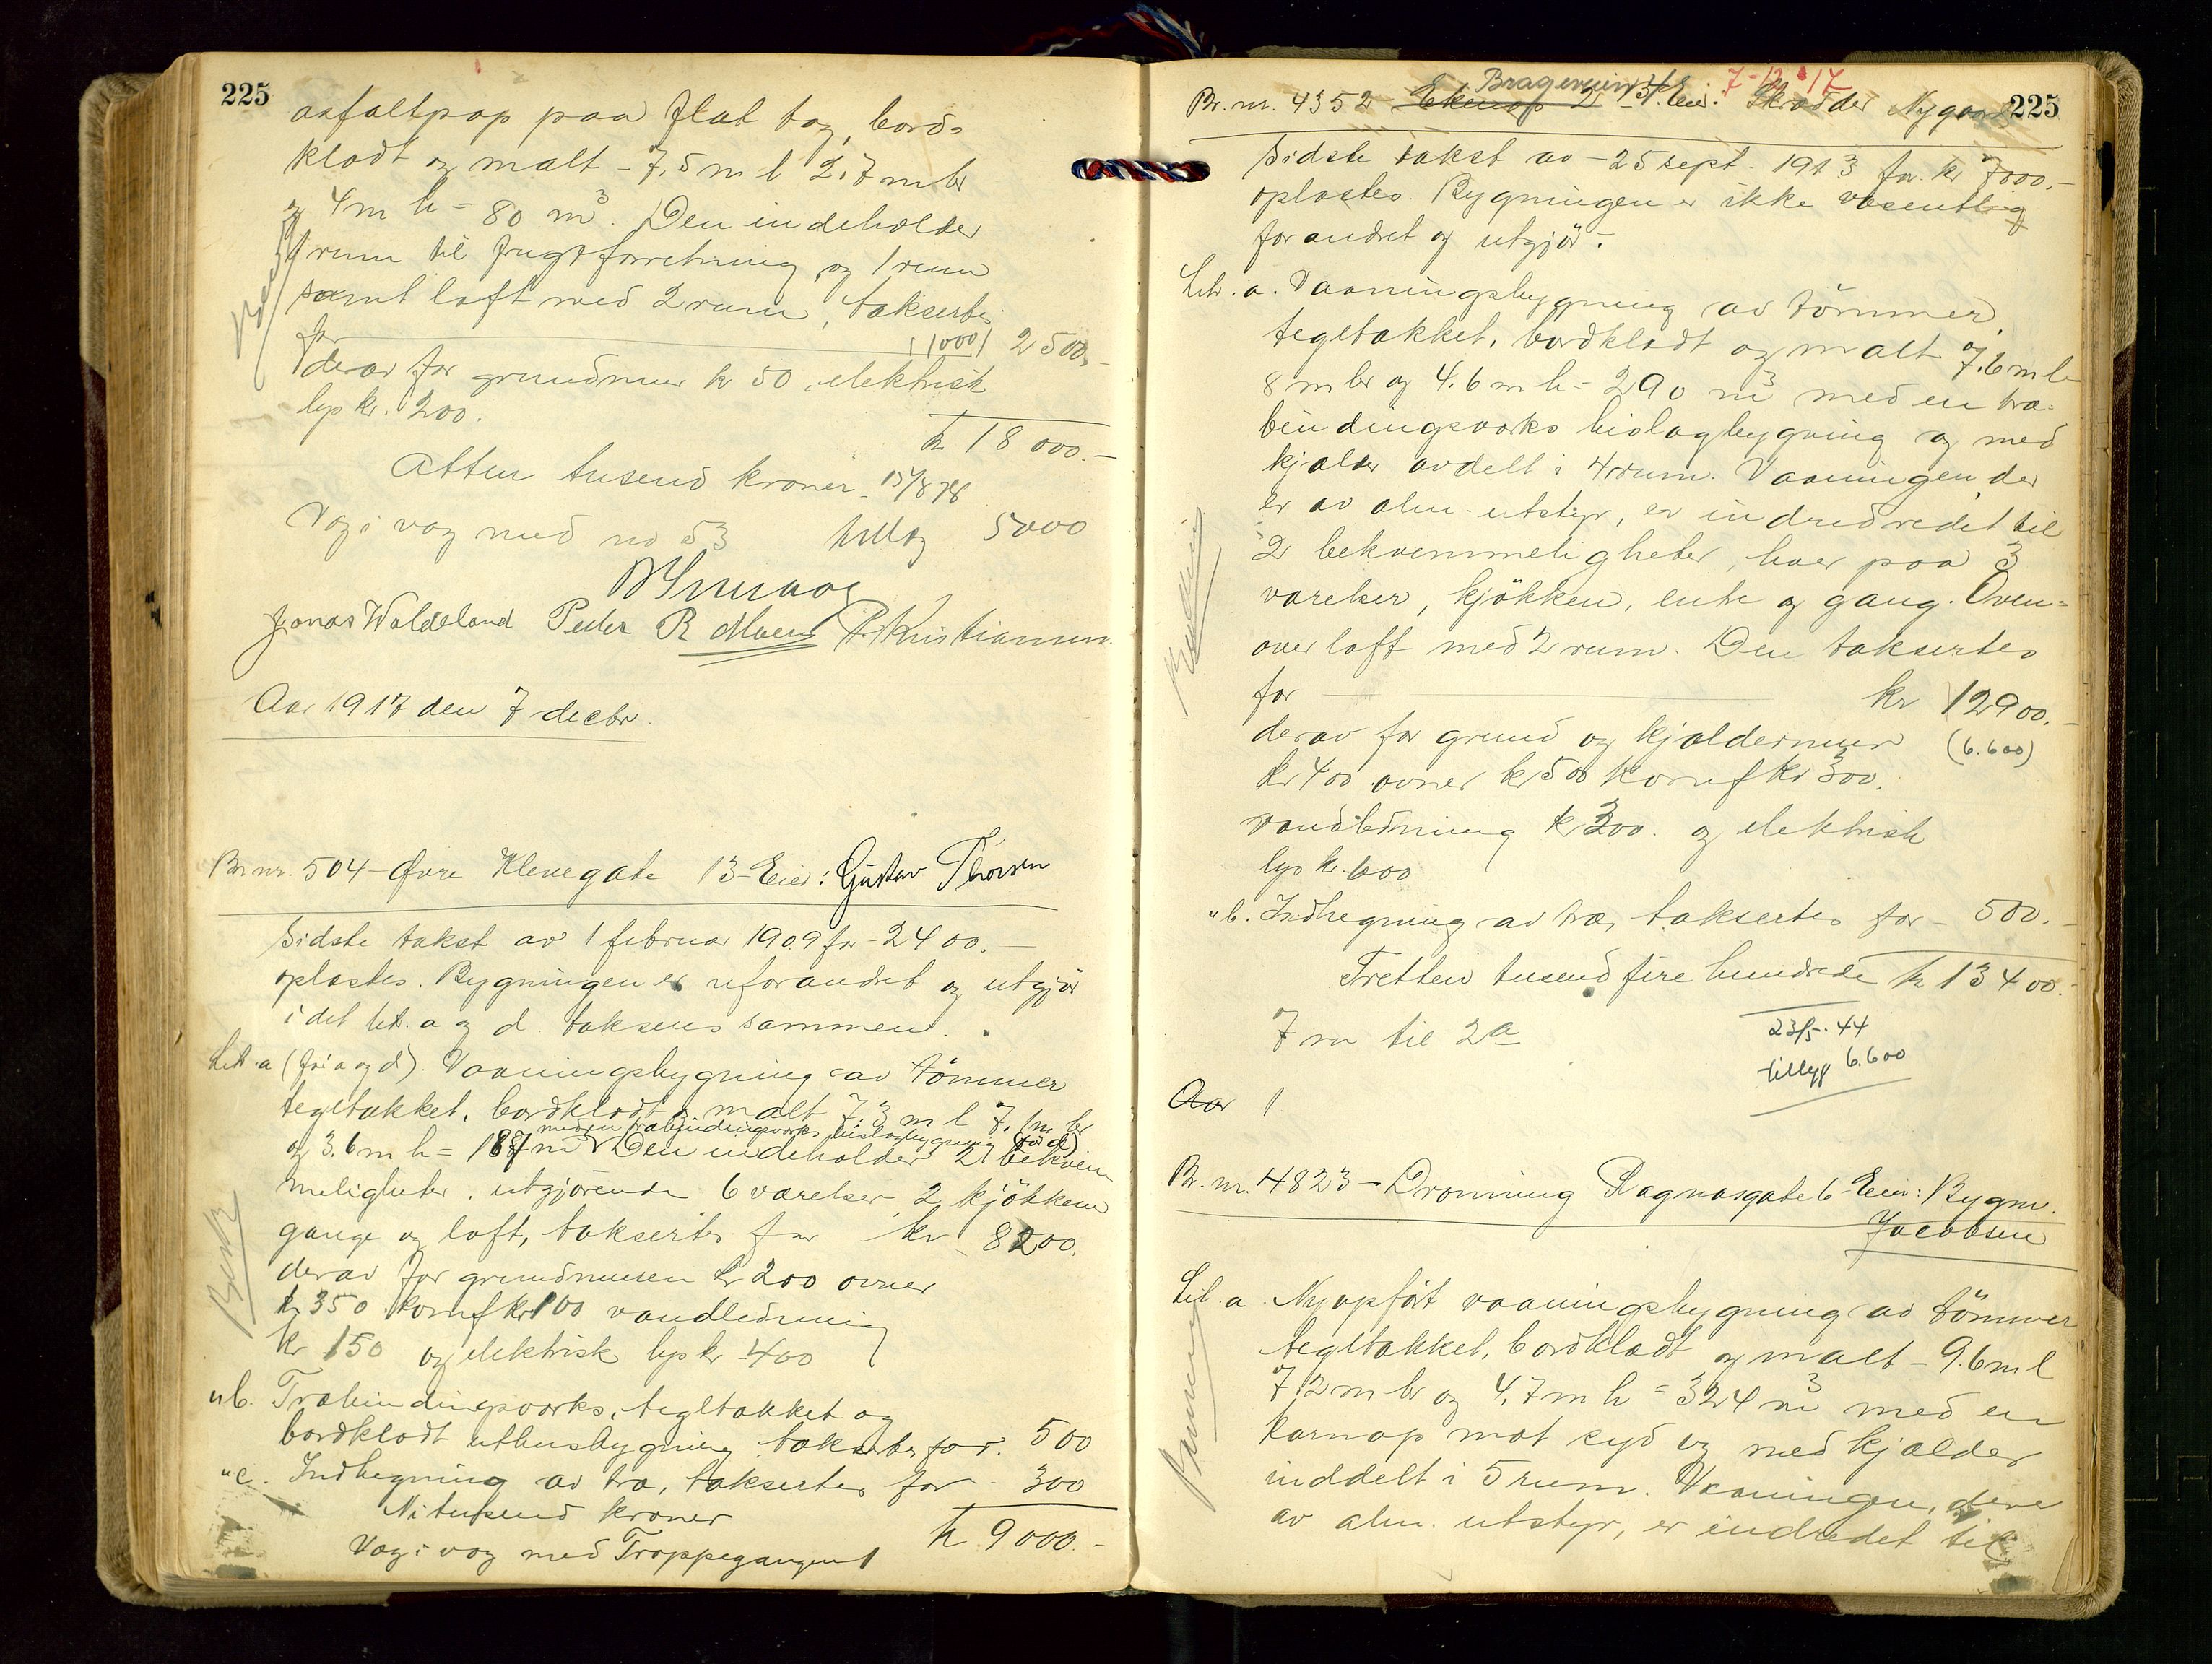 225
asfaltpap paa flat tag, bord-
klædt og malt - 7,5 m l 2,7 m br
og 4 m h = 80 m³. Den indeholder
1 rum til frugtforretning og 1 rum
samt loft med 2 rum, takseres
for (1000) 2500.-
derav for grundmur kr 50, elektrisk
lys kr. 200.
kr 18 000.-
Atten tusend kroner. 15/8 78
Væg i væg med no 53 tillæg 5000
Jonas Waldeland Peder R. Moen P. Kristiansen
Aar 1917 den 7 decbr.
Br. nr. 504 - Øvre Klevegate 13 - Eier: Gustav Thorsen
Sidste takst av 1 februar 1909 for - 2400.-
oplæstes. Bygningen er uforandret og utgjør
idet litr. a og d. takseres sammen.
Litr. a (før a og d). Vaaningsbygning av tömmer
tegltækket, bordklædt og malt 7.3 m l 7.1 m br
med en træbindingsværks bislagbygning (før d)
og 3.6 m h = 187 m³ Den indeholder 2 bekvem
meligheter, utgjörende 6 værelser, 2 kjökken
gange og loft, takseres for kr 8200.
derav for grundmuren kr 200 ovner
kr 350 komf kr 100 vandledning
kr 150 og elektrisk lys kr 400
" b. Træbindingsværks, tegltækket og
bordklædt uthusbygning takseres for. 500
" c. Indhegning av træ, takseres for 300
Ni tusend kroner kr 9000.-
Væg i væg med Trappegangen 1
7-12-17
Bragerveien
225
Br. nr. 4352 Ekenæs 2 Eier: Skrædder Nygaard
Sidste takst av - 25 sept. 1913 for kr 7000.-
oplæstes. Bygningen er ikke væsentlig
forandret og utgjör:
Litr. a. Vaaningsbygning av tömmer,
tegltækket, bordklædt og malt 7.6 m l
8 m br og 4.6 m h = 290 m³ med en træ-
bindingsværks bislagbygning og med
kjælder avdelt i 4 rum. Vaaningen, der
er av alm. utstyr, er indredet til
2 bekvemmeligheter, hver paa 3
værelser, kjökken, entre og gang. Oven-
over loft med 2 rum. Den takseres
for kr 12900.-
derav for grund og kjældermur (6.600)
kr 400 ovner kr 500 Komf kr 300.
vandledning kr 300. og elektrisk
lys kr. 600
" b. Indhegning av træ, takseres for - 500.-
Tretten tusend fire hundrede kr 13 400.-
7 m til 2a
23/5-44
tillegg 6.600
Aar 1
Br. nr. 4823 - Dronning Ragnasgate 6 Eier: Bygm.
Jacobsen
Litr. a. Nyopført vaaningsbygning av tömmer
tegltækket, bordklædt og malt - 9.6 m l
7,2 m br og 4,7 m h = 324 m³ med en
karnap mot syd og med kjælder
inddelt i 5 rum. Vaaningen, der er
av alm. utstyr, er indredet til